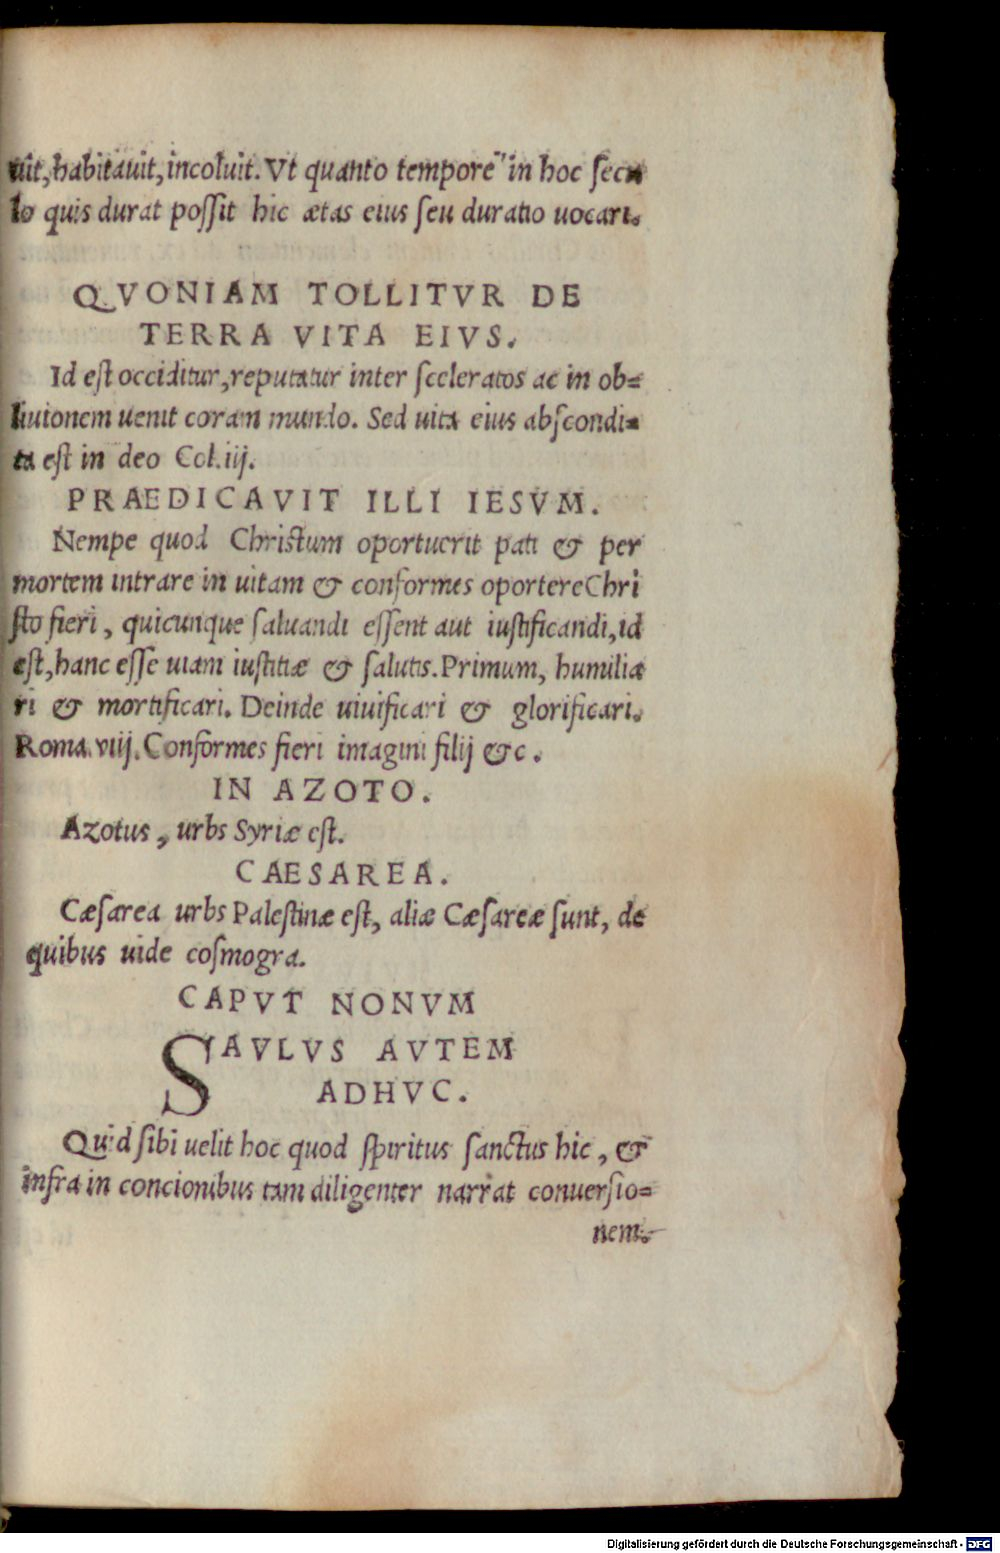 uit, habitauit, incoluit. Vt quanto tempore in hoc secu
lo quis durat possit hic ætas eius seu duratio uocari.
QVONIAM TOLLITVR DE
TERRA VITA EIVS.
Id est occiditur, reputatur inter sceleratos ac in ob=
liuionem uenit coram mundo. Sed uita eius abscondi=
ta est in deo Col. iij.
PRAEDICAVIT ILLI IESVM.
Nempe quod Christum oportuerit pati & per
mortem intrare in uitam & conformes oportere Chri
sto fieri, quicunque saluandi essent aut iustificandi, id
est, hanc esse uiam iustitiæ & salutis. Primum, humilia
ri & mortificari. Deinde uiuificari & glorificari.
Roma. viij. Conformes fieri imagini filij &c.
IN AZOTO.
Azotus, urbs Syriæ est.
CAESAREA.
Cæsarea urbs Palestinæ est, aliæ Cæsareæ sunt, de
quibus uide cosmogra.
CAPVT NONVM
SAVLVS AVTEM
ADHVC.
Quid sibi uelit hoc quod spiritus sanctus hic, &
infra in concionibus tam diligenter narrat conuersio=
nem.
Digitalisierung gefördert durch die Deutsche Forschungsgemeinschaft - DFG